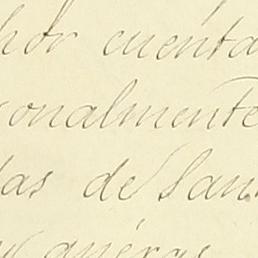 hor cuenta
onalmente
tas de San